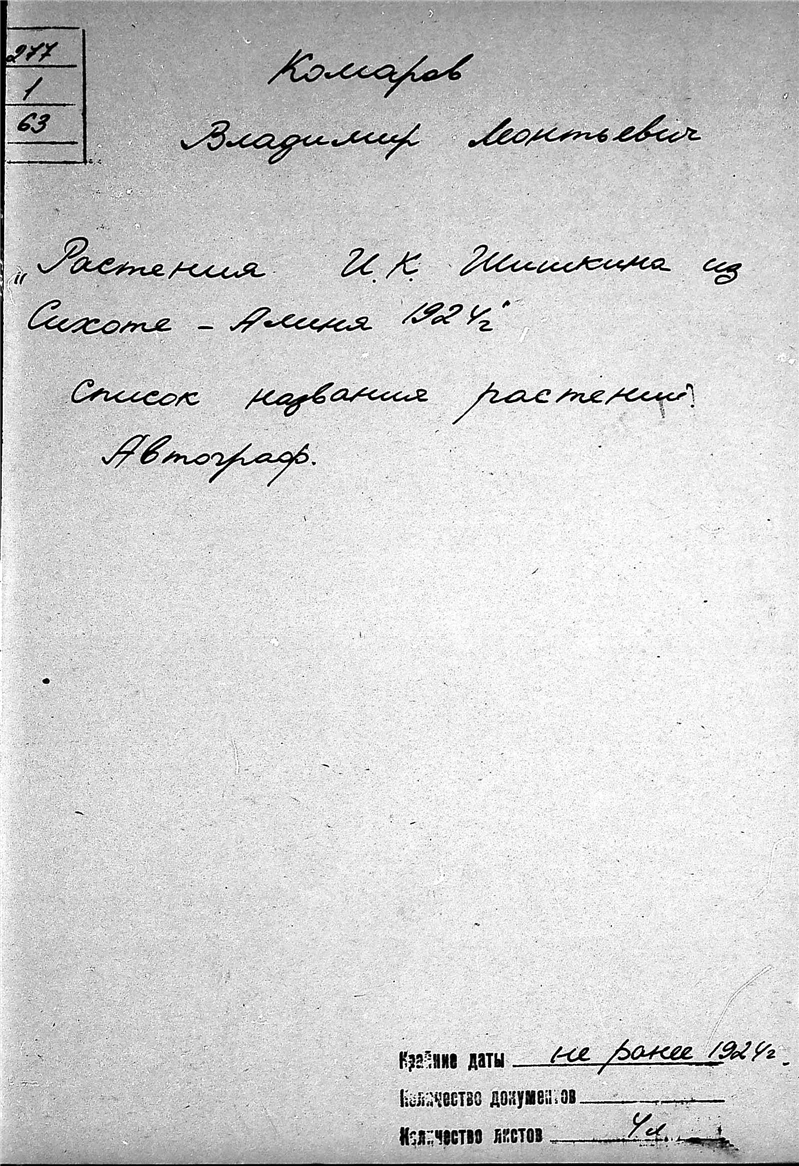 277
1
63
Комаров
Владимир Леонтьевич
„Растения И.К. Шишкина из
Сихоте - Алиня 1924г"
Список названия растений.
Автограф.
Крайние даты не ранее 1924г.
Количество документов
Количество листов 4л.